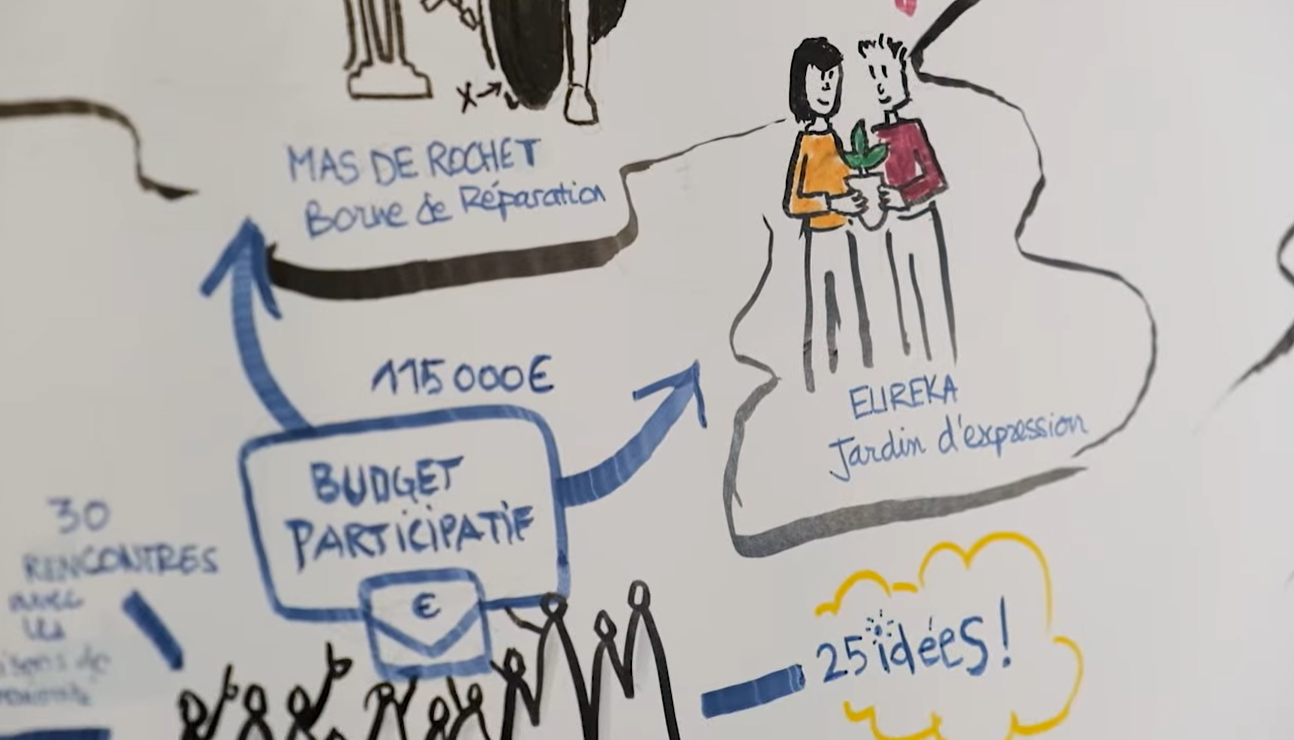 X
MAS DE ROCHET
Borne de Réparation
115 000€
BUDGET
PARTICIPATIF
€
EUREKA
Jardin d'expression
30
RENCONTRES
avec
les
de
25 idées!